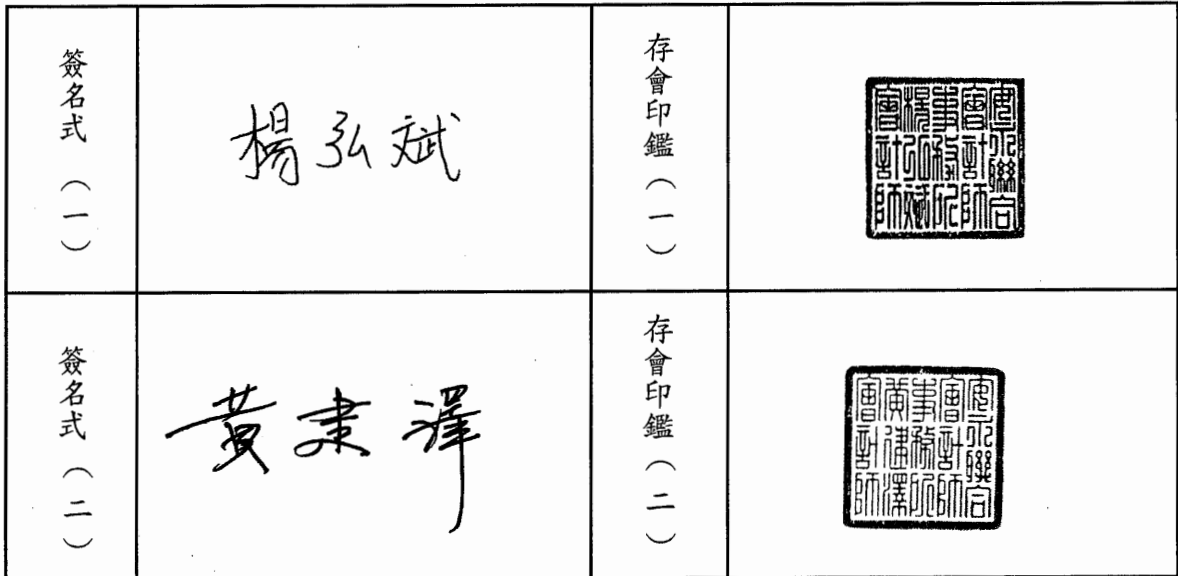 簽名式（一）
楊弘斌
存會印鑑（一）
安永聯合
會計師
事務所
楊弘斌
會計師
簽名式（二）
黃建澤
存會印鑑（二）
安永聯合
會計師
事務所
黃建澤
會計師